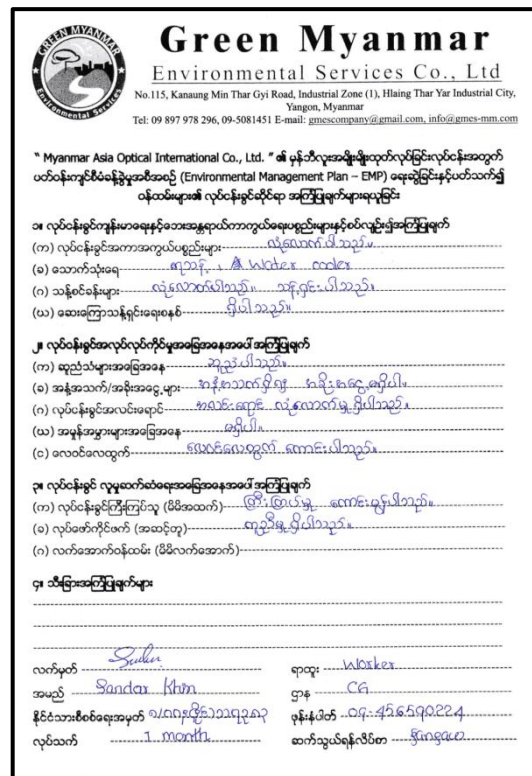 GREEN MYANMAR
Environmental Services
Green Myanmar
Environmental Services Co., Ltd
No.115, Kanaung Min Thar Gyi Road, Industrial Zone (1), Hlaing Thar Yar Industrial City,
Yangon, Myanmar
Tel: 09 897 978 296, 09-5081451 E-mail: gmescompany@gmail.com, info@gmes-mm.com
" Myanmar Asia Optical International Co., Ltd. " ၏ မှန်ဘီလူးအမျိုးမျိုးထုတ်လုပ်ခြင်းလုပ်ငန်းအတွက်
ပတ်ဝန်းကျင်စီမံခန့်ခွဲမှုအစီအစဉ် (Environmental Management Plan – EMP) ရေးဆွဲခြင်းနှင့်ပတ်သက်၍
ဝန်ထမ်းများ၏ လုပ်ငန်းခွင်ဆိုင်ရာ အကြံပြုချက်များရယူခြင်း
၁။ လုပ်ငန်းခွင်ကျန်းမာရေးနှင့်ဘေးအန္တရာယ်ကာကွယ်ရေးပစ္စည်းများနှင့်စပ်လျဉ်း၍အကြံပြုချက်
(က) လုပ်ငန်းခွင်အကာအကွယ်ပစ္စည်းများ လုံလောက်ပါသည်။
(ခ) သောက်သုံးရေ ရေသန့်, Water cooler
(ဂ) သန့်စင်ခန်းများ လုံလောက်ပါသည်။ သန့်ရှင်းပါသည်။
(ဃ) ဆေးကြောသန့်ရှင်းရေးစနစ် ရှိပါသည်။
၂။ လုပ်ငန်းခွင်အလုပ်လုပ်ကိုင်မှုအခြေအနေအပေါ် အကြံပြုချက်
(က) ဆူညံသံများအခြေအနေ ဆူညံပါသည်။
(ခ) အနံ့အသက်/အခိုးအငွေ့များ အနံ့အသက်ရှိ၍ အခိုးအငွေ့မရှိပါ။
(ဂ) လုပ်ငန်းခွင်အလင်းရောင် အလင်းရောင် လုံလောက်မှု ရှိပါသည်။
(ဃ) အမှုန်အမွှားများအခြေအနေ မရှိပါ။
(င) လေဝင်လေထွက် လေဝင်လေထွက် ကောင်းပါသည်။
၃။ လုပ်ငန်းခွင် လူမှုဆက်ဆံရေးအခြေအနေအပေါ် အကြံပြုချက်
(က) လုပ်ငန်းခွင်ကြီးကြပ်သူ (မိမိအထက်) ကြီးကြပ်မှု ကောင်းမွန်ပါသည်။
(ခ) လုပ်ဖော်ကိုင်ဖက် (အဆင့်တူ) ကူညီမှု ရှိပါသည်။
(ဂ) လက်အောက်ဝန်ထမ်း (မိမိလက်အောက်)
၄။ သီးခြားအကြံပြုချက်များ
လက်မှတ်
ရာထူး Worker
အမည် Sandar Khin
ဌာန CG
နိုင်ငံသားစိစစ်ရေးအမှတ်
ဖုန်းနံပါတ် 09-456590224
လုပ်သက် 1 month
ဆက်သွယ်ရန်လိပ်စာ